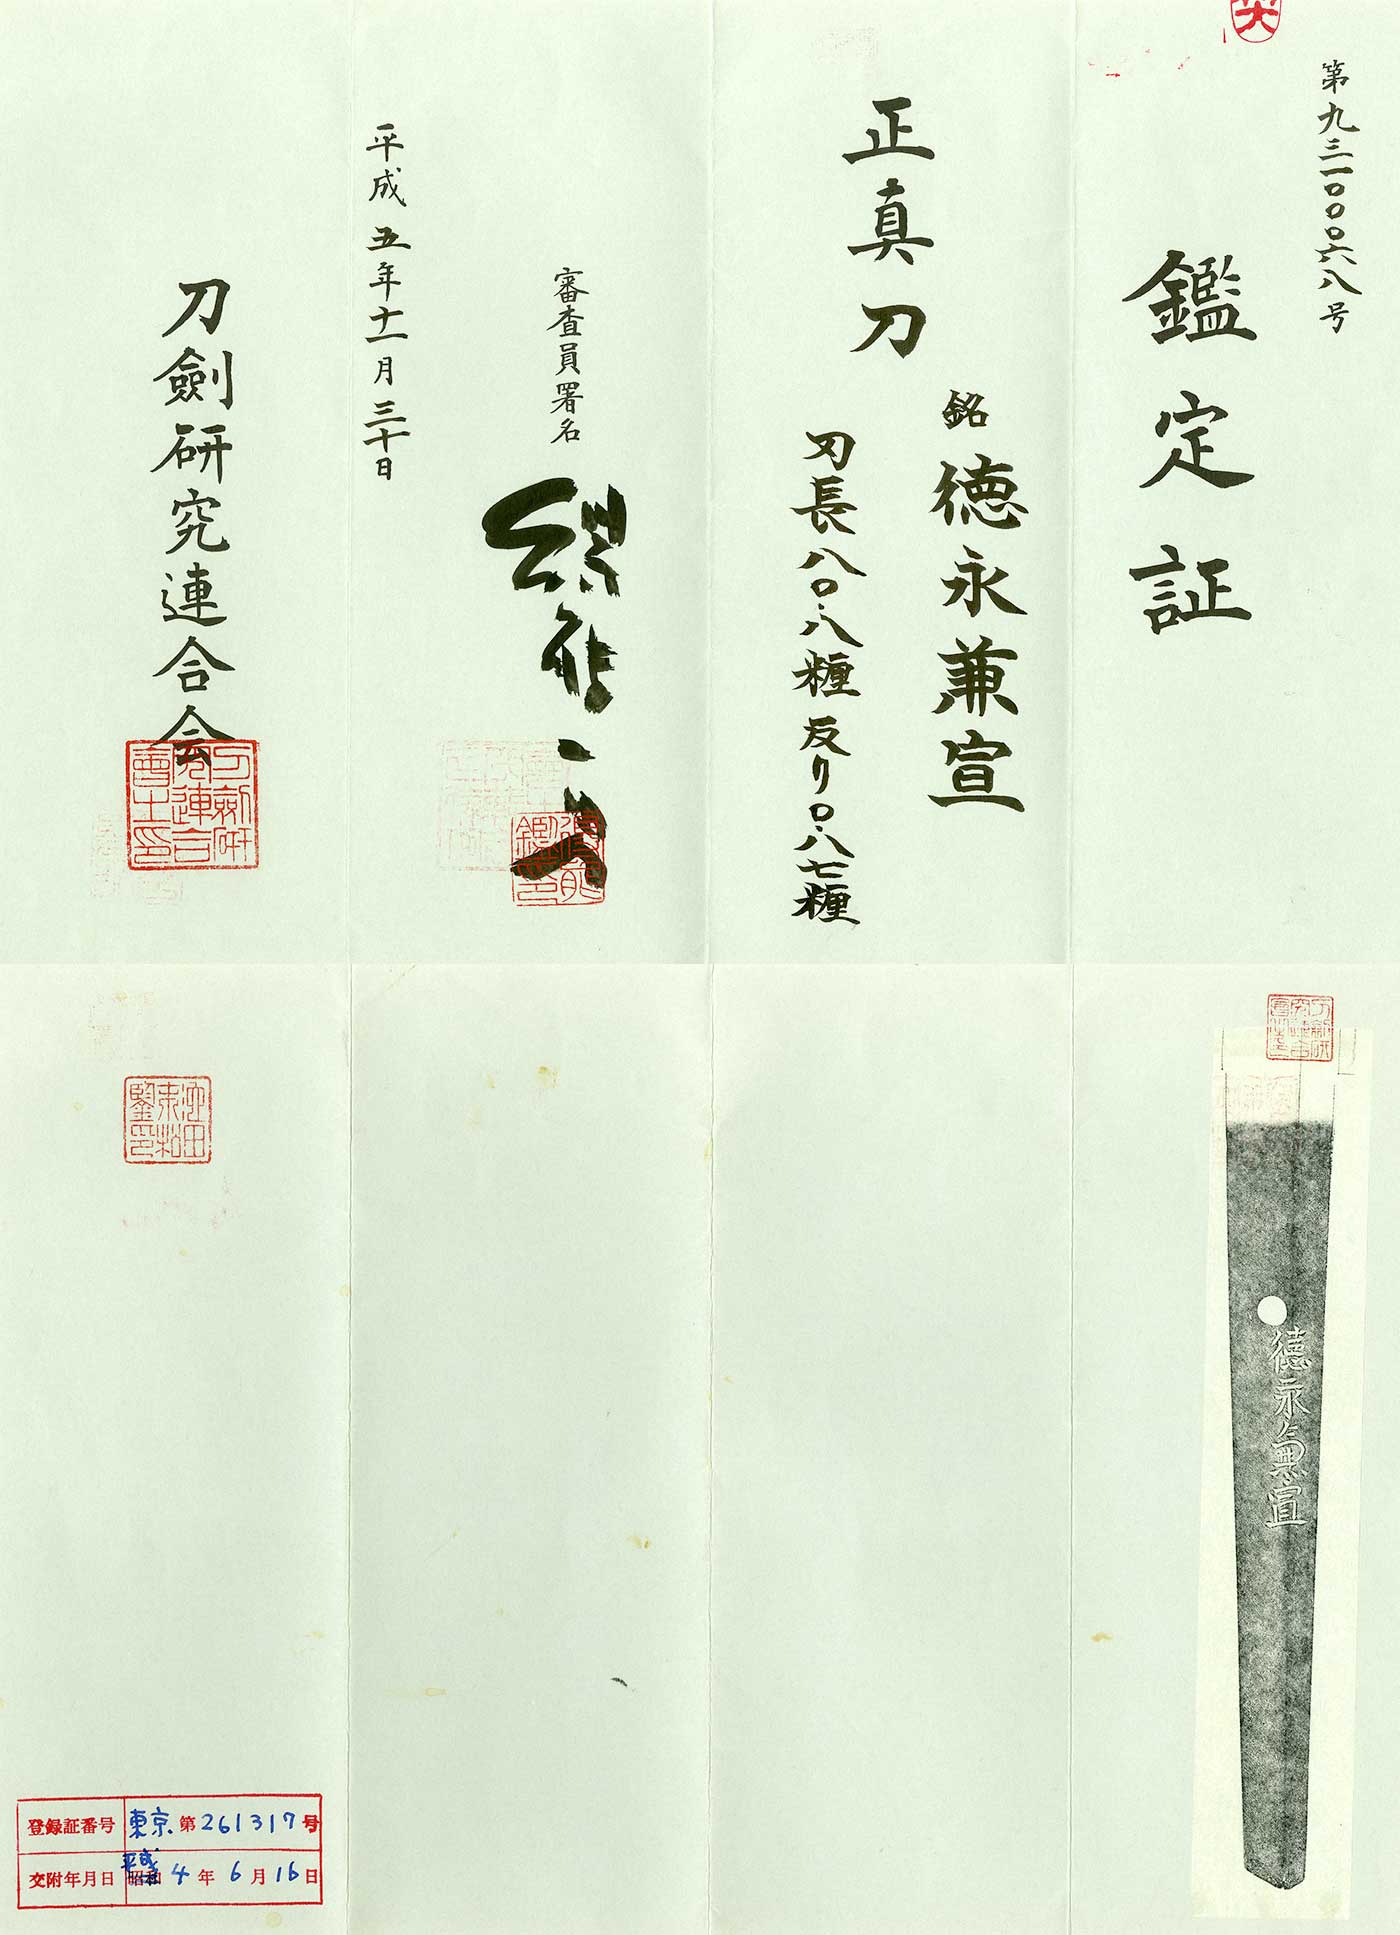 第九三一〇〇〇六八号
鑑定証
正真刀
銘 徳永兼宣
刃長八〇.八糎 反り〇.八七糎
審査員署名
平成五年十一月三十日
刀劍研究連合会
徳永兼宣
登録証番号 東京 第261317号
交附年月日 平成 昭和 4年6月16日